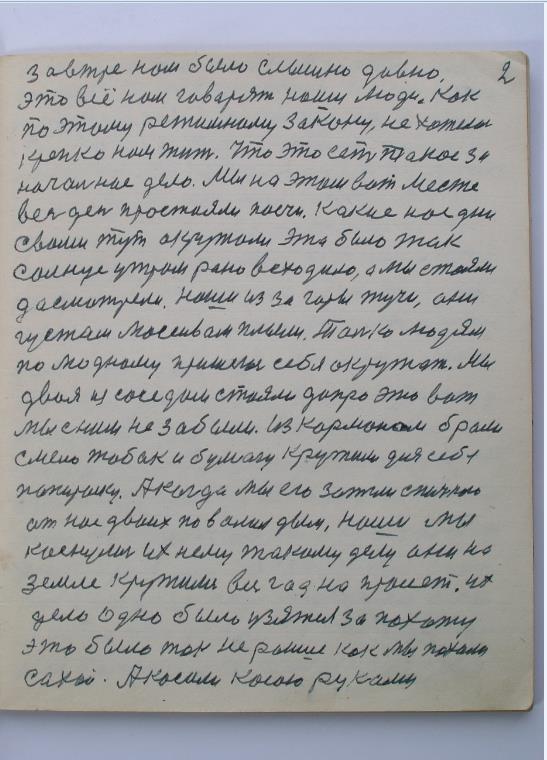 2
завтре нам было слышно давно,
это всё нам говарят наши люди. Как
по этому режимному закону, не хотели
крепко нам жит. Что это сеть такое за
начал ное дело. Мы на этом вот месте
вес ден простояли почти. Какие нас дни
своми тут окружали эта было так
солнце утром рано всходило, а мы стояли
да смотрели. Наши из за горы тучи, они
густам массивам плыли. Толко людям
по модному пришлос себя окружат. Мы
двоя из соседом стояли добро это вот
мы сним не забыли. Из карманом брали
смело тобак и бумагу крутили для себя
папироску. А когда мы его зажгли спичкою
от нас двоих повалил дым, наши мы
коснулис их нему такому делу они на
земле крутилис вес гад на просет. их
дело одно было взялися за пахоту
это было так не ранше как мы пахали
сахой. А косили косою руками